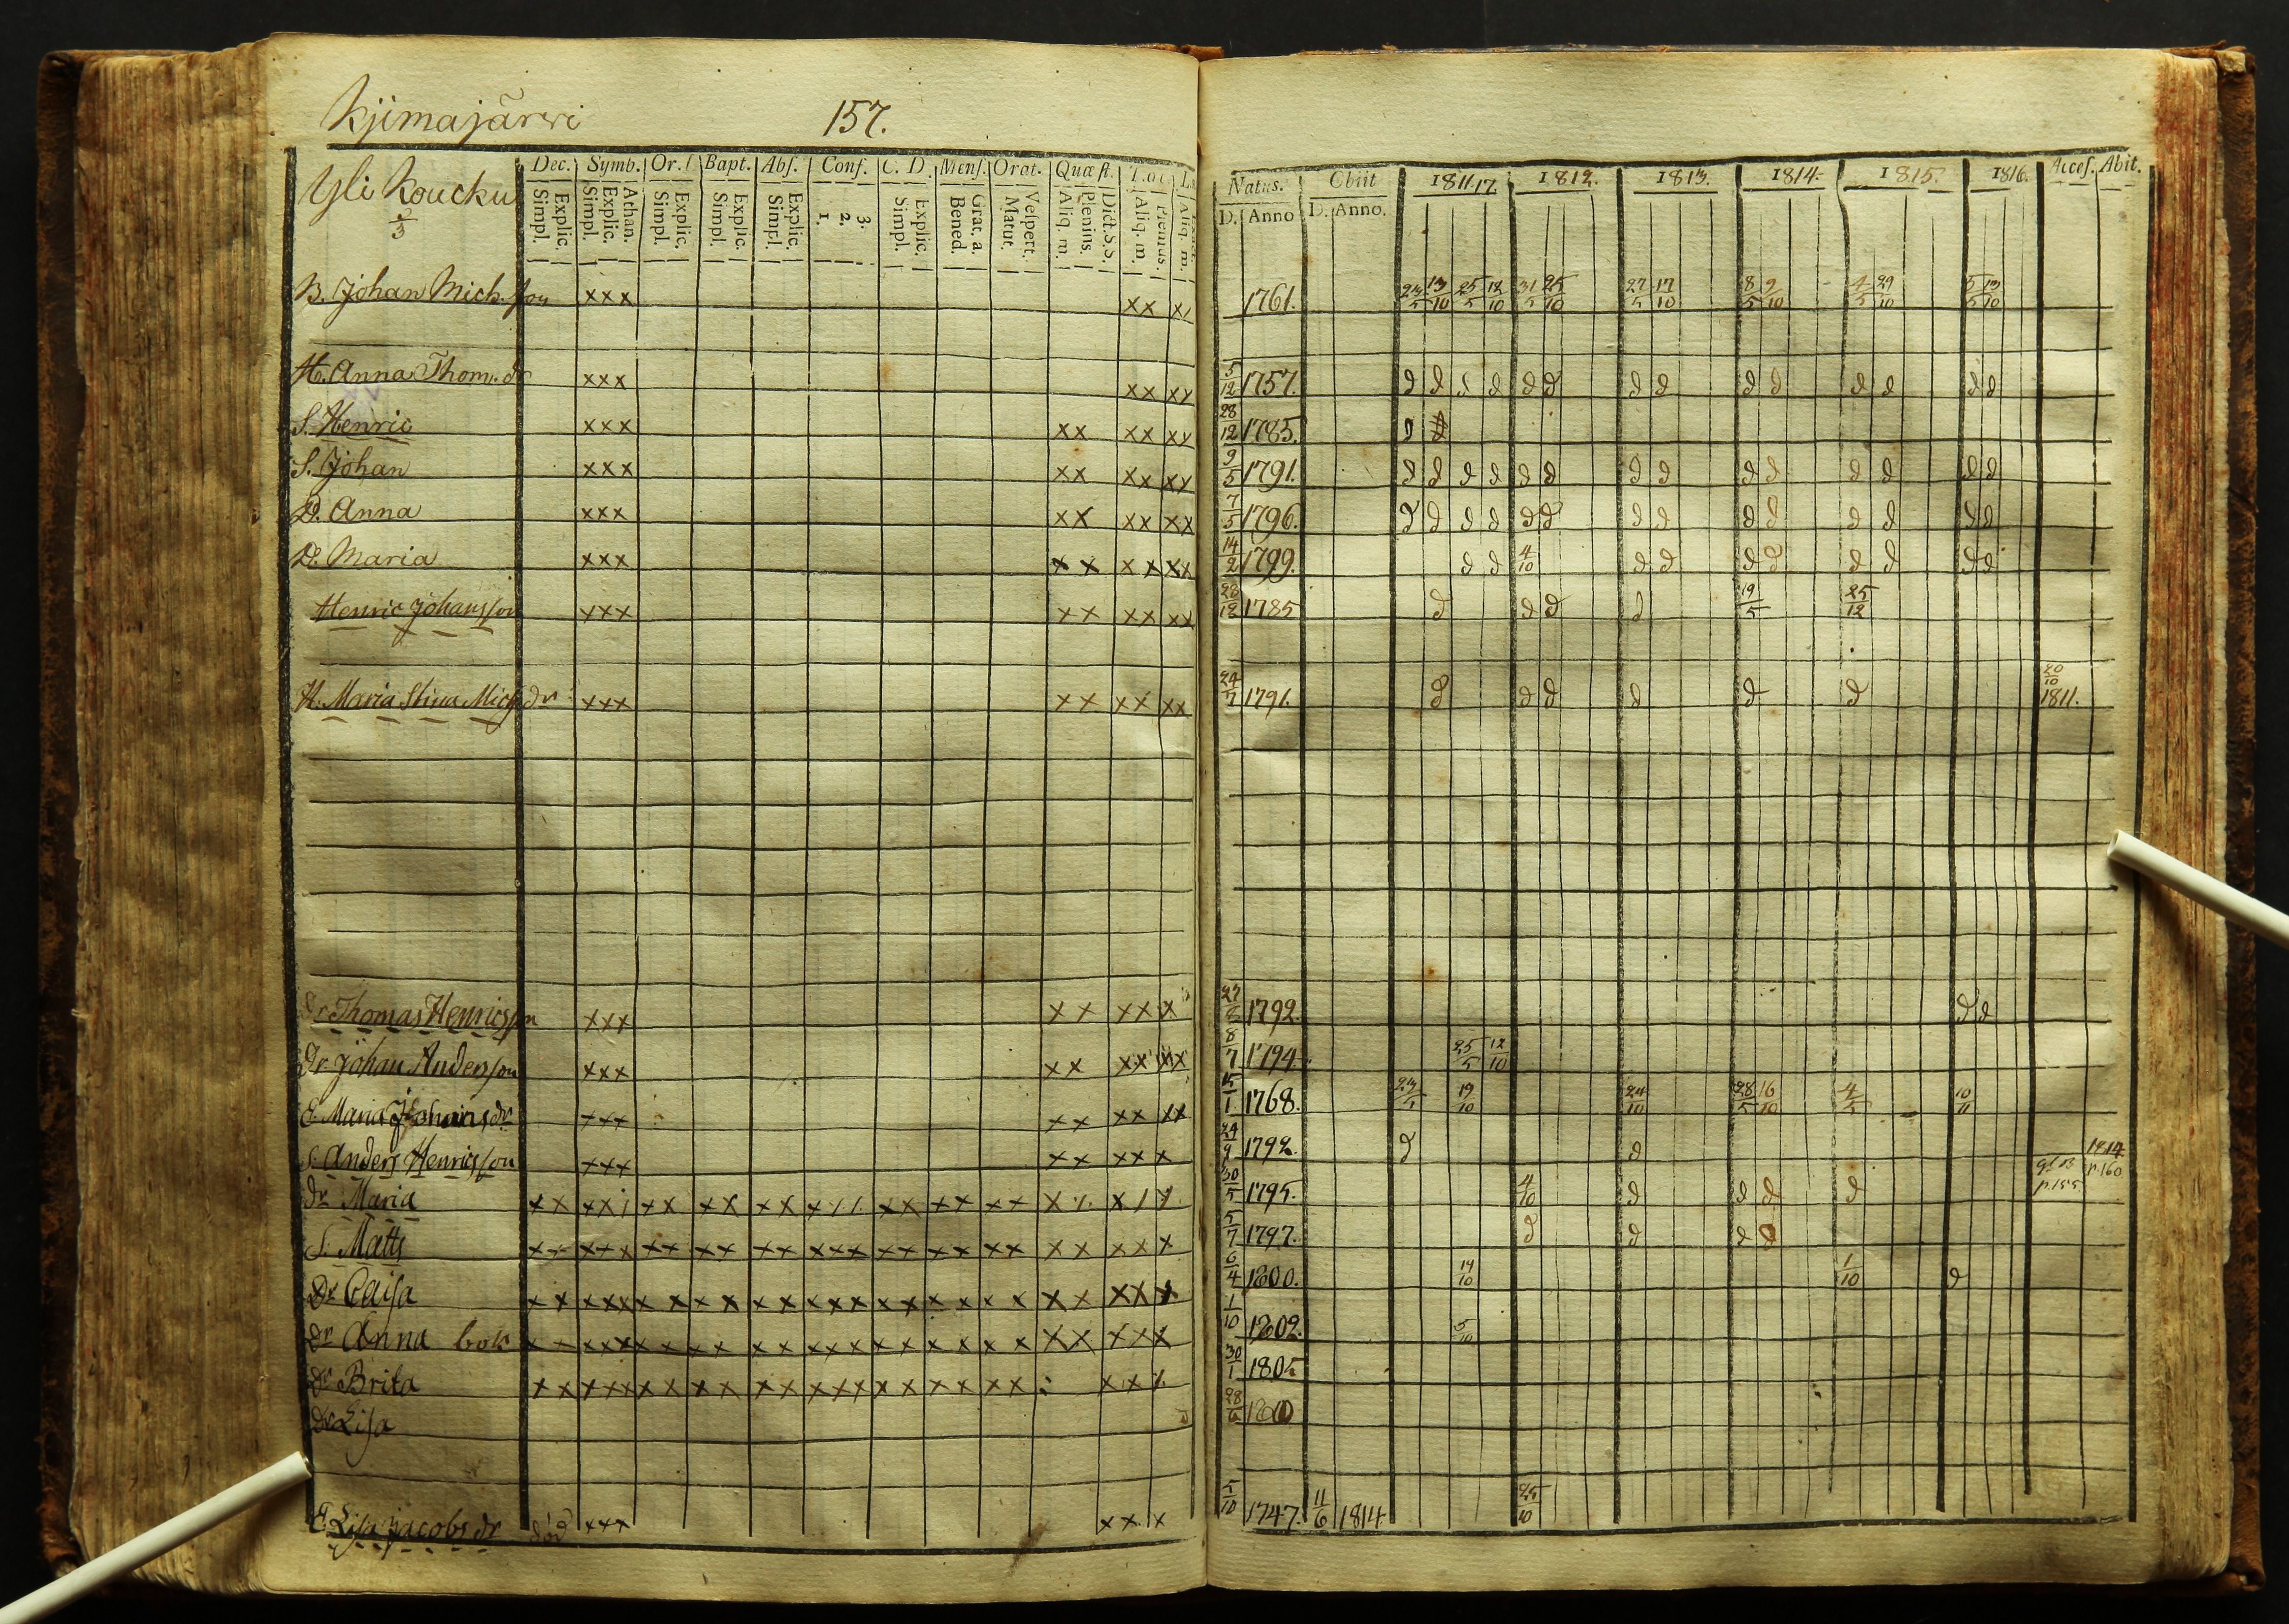 Kjimajärwi 157.
Dec. Symb. Or. Bapt. Abs. Conf. C. D. Mens. Orat. Quæst.
Yli Koucku
2/3
Explic. Simpl. Athan. Explic. Simpl. Explic. Simpl. Explic. Simpl. Explic. Simpl. 3. 2. 1. Explic. Simpl. Grat. a. Bened. Vespert. Matut. Dict. S.S. Plenius. Aliq. m. Plenius. Aliq. m. Aliq. m.
Natus. Obiit 1811.17. 1812. 1813. 1814. 1815. 1816. Acces. Abit.
D. Anno D. Anno.
B. Johan Mich.son xxx xx xx 1761. 23/5 13/10 25/5 12/10 31/5 25/10 27/5 17/10 8/5 9/10 4/5 29/10 5/5 13/10
H. Anna Thom. dr xxx xx xx 5/12 1757. d d d d d d d d d d d d d d
S. Henric xxx xx xx xx 28/12 1785. d
S. Johan xxx xx xx xx 9/5 1791. d d d d d d d d d d d d d d
D. Anna xxx xx xx xx 7/5 1796. d d d d d d d d d d d d d d
D. Maria xxx xx xx xx 14/2 1799. d d 4/10 d d d d d d d d
Henric Johansson xxx xx xx xx 28/12 1785 d d d d 19/5 25/12
H. Maria Stina Mich dr xxx xx xx xx 24/7 1791. d d d d d d 20/10 1811.
Dr Thomas Henricsson xxx xx xx x 27/8 1792 d d
Dr Johan Andersson xxx xx xx xx 8/7 1794. 25/5 12/10
E. Maria Johans dr xxx xx xx xx 15/1 1768. 23/5 19/10 24/10 28/5 16/10 4/5 10/11
S. Anders Henricsson xxx xx xx x 29/9 1792. d d 1814 p. 160
dr Maria xx xx xx xx xx xx xx xx 30/5 1795. 4/10 d d d d p. 155
S. Matts xx xxx xx xx xx xxx xx xx xx xx xx x 5/7 1797. d d d d
Dr Caisa xx xxx xx xx xx xxx xx xx xx xx xx x 6/4 1800. 14/10 1/10 d
Dr Anna bok xx xxx xx xx xx xxx xx xx xx xx xx x 1/10 1802. 5/10
Dr Brita xx xxx xx xx xx xxx xx xx xx xx 30/1 1805
Dr Lisa 28/6
E. Lisa Jacobs dr död xxx xx x 5/10 1747. 11/6 1814 25/10